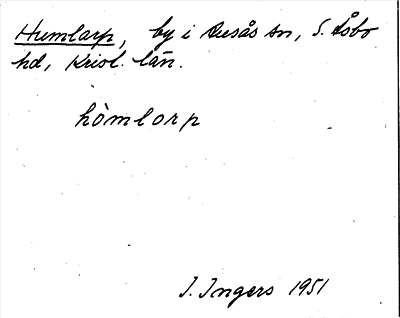 Humlarp, by i Risekatslösa sn, S. Åsbo
hd, Krist. län.
hòmlorp
I. Ingers 1951